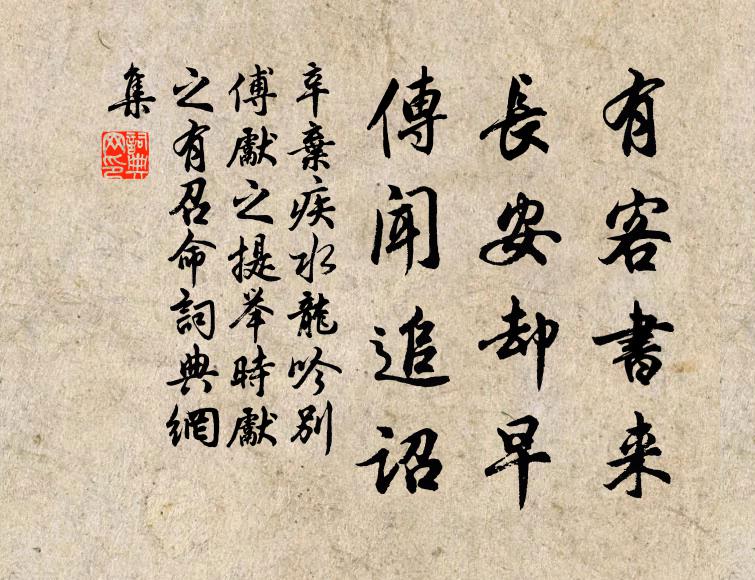 有客書来
長安却早
傳聞追詔
辛棄疾水龍吟別
傅獻之提举時獻
之有召命詞典網
集
詞典網印